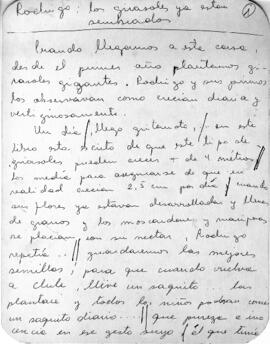 Rodrigo: los girasoles ya estan
sembrados
1
Cuando llegamos a esta casa,
desde el primer año plantamos gi-
rasoles gigantes. Rodrigo y sus primos
los observavan como crecian diaria y
vertiginosamente.
Un dia, llego gritando, - en este
libro sta. escrito de que este tipo de
girasoles pueden crecer + de 4 metros
los media para asegurarse de que en
realidad crecian 2,5 cm por dia. cuando
sus flores ya estavan desarrolladas y llenas
de granos y los moscardones y mariposas
se placian con su nectar, Rodrigo
repetia.. guardaremos las mejores
semillas, para que cuando vuelva
a Chile, lleve un saquito las
plantare y todos los niños podran comer
un saquito diario... que pureza e ino
cencia en ese gesto suyo, el que tenia